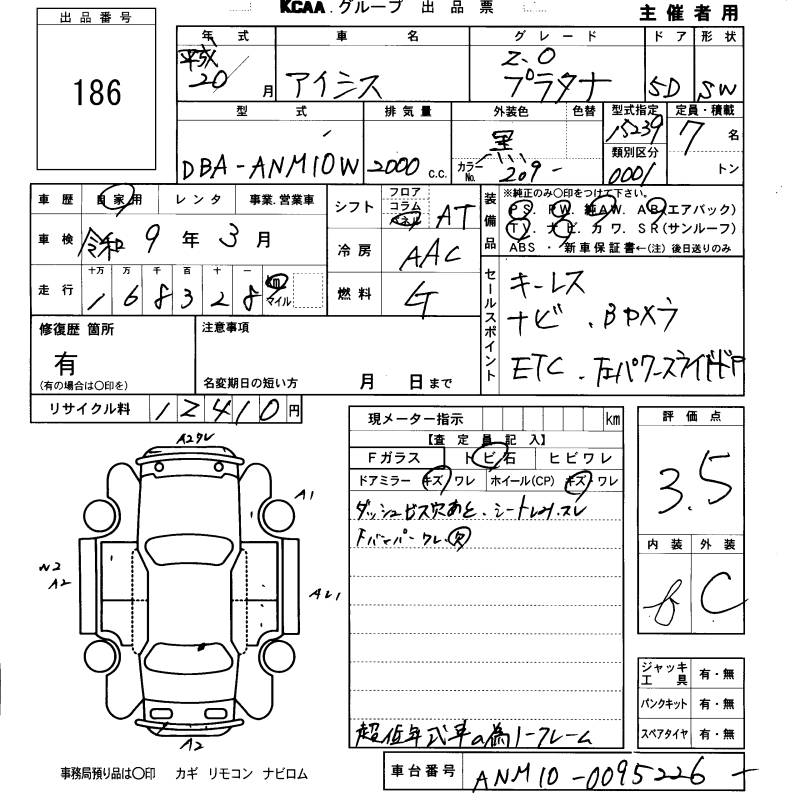 KCAA.グループ 出品票
主催者用
出品番号
186
年式 車名 グレード ドア 形状
平成20月 アイシス 2.0 プラタナ 5D SW
型式 排気量 外装色 色替 型式指定 定員・積載
DBA-ANM10W 2000c.c. 黒 カラーNo. 209 15239 7名
類別区分 0001 トン
車歴 自家用 レンタ 事業.営業車
車検 令和9年3月
十万 万 千 百 十 一
走行 168328 km マイル
シフト フロア コラム パネル AT
冷房 AAC
燃料 G
装備品
※純正のみ〇印をつけて下さい。
PS. PW. 純AW. AB(エアバック)
TV. ナビ. カワ. SR(サンルーフ)
ABS ・ 新車保証書←(注)後日送りのみ
セールスポイント
キーレス
ナビ 、BPメラ
ETC 、左パワースライドドア
修復歴 箇所
有
(有の場合は〇印を)
注意事項
名変期日の短い方 月 日まで
リサイクル料 12410円
現メーター指示 km
【査定員記入】
Fガラス トビ石 ヒビワレ
ドアミラー キズ ワレ ホイール(CP) キズ ワレ
ダッシュビス穴あと、シートよれ.スレ
Fバンパーワレ.欠
超低年式車の為ノークレーム
評価点
3.5
内装 外装
C
ジャッキ工具 有・無
パンクキット 有・無
スペアタイヤ 有・無
A2
A1
W2
A2
A2
事務局預り品は〇印 カギ リモコン ナビロム
車台番号 ANM10-0095226